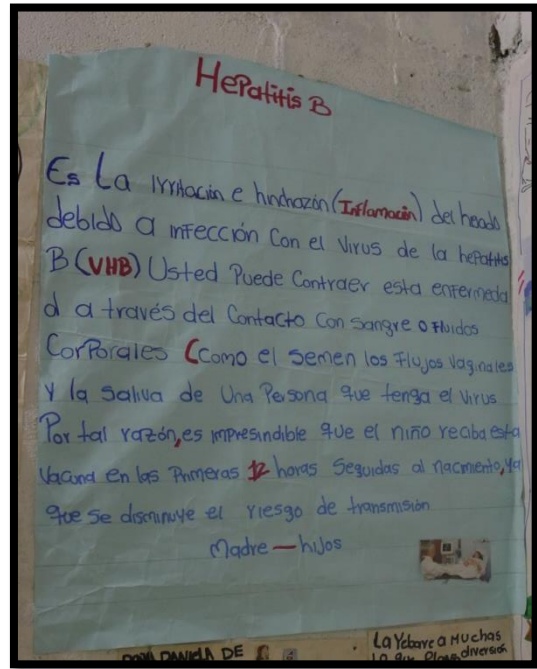 Hepatitis B
Es La irritación e hinchazón (Inflamación) del hegado
debido a infección Con el Virus de la hepatitis
B (VHB) Usted Puede Contraer esta enfermeda
d a través del Contacto Con Sangre o Fluidos
Corporales (Como el semen los Flujos Vaginales
y la saliva de Una Persona que tenga el virus
Por tal razón, es impresindible que el niño reciba esta
Vacuna en las Primeras 12 horas Seguidas al nacimiento, ya
que se disminuye el riesgo de transmisión
Madre — hijos
DANIELA DE
La Yebare a Muchas
diversión